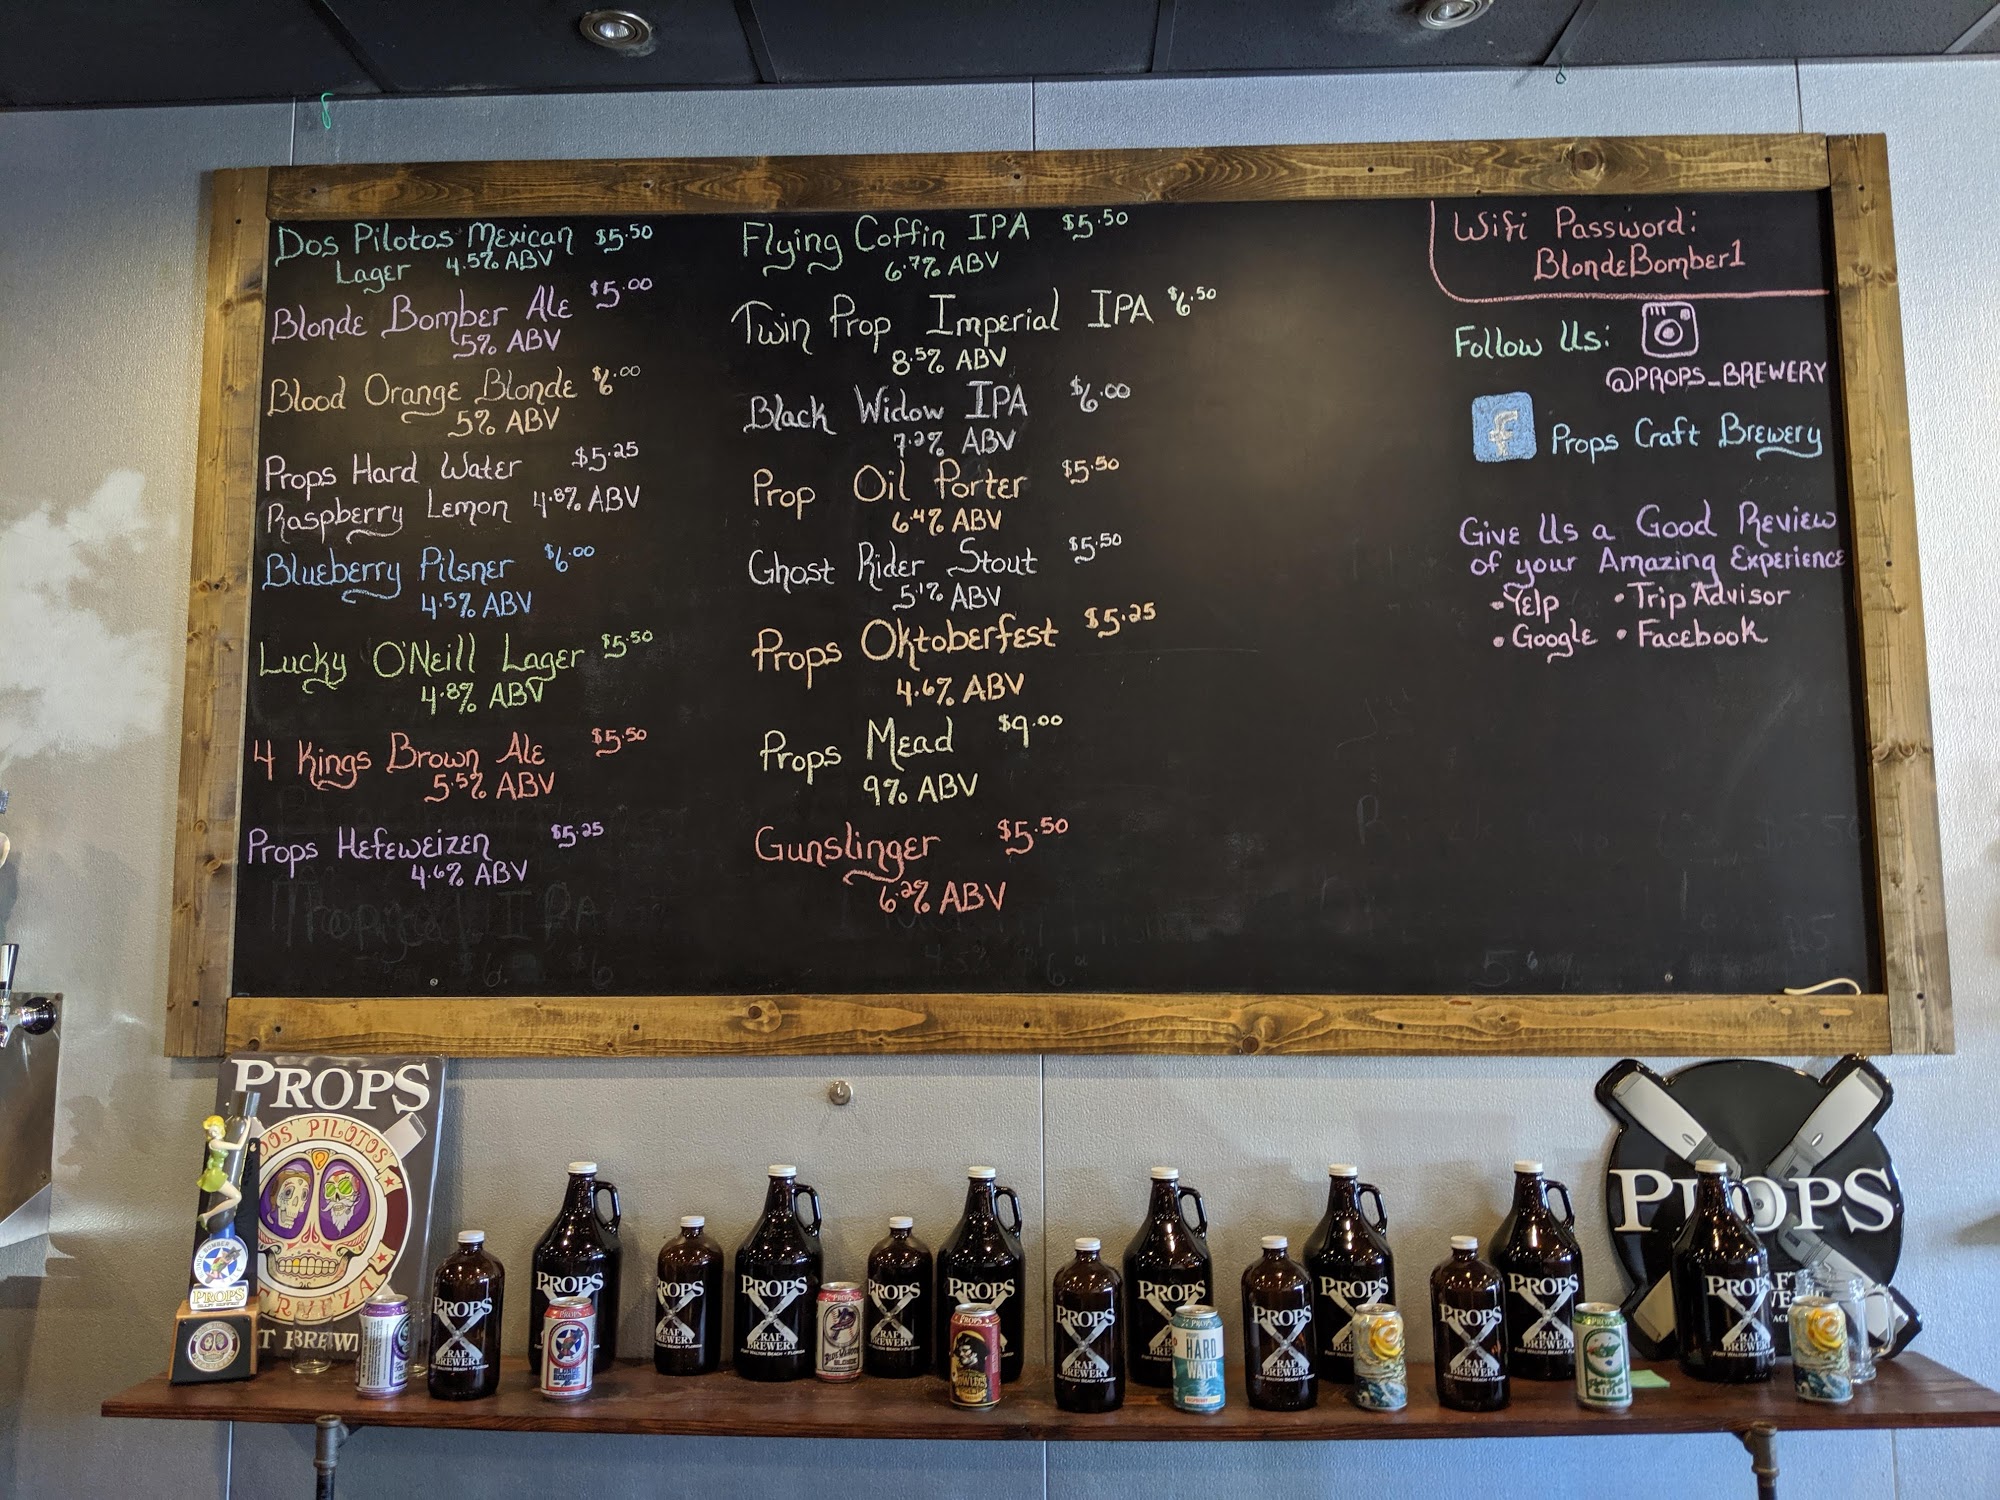 Dos Pilotos Mexican $5.50
Lager 4.5% ABV
Blonde Bomber Ale $5.00
5% ABV
Blood Orange Blonde $6.00
5% ABV
Props Hard Water $5.25
Raspberry Lemon 4.8% ABV
Blueberry Pilsner $6.00
4.5% ABV
Lucky O'Neill Lager $5.50
4.8% ABV
4 Kings Brown Ale $5.50
5.5% ABV
Props Hefeweizen $5.25
4.6% ABV
Tropical IPA
Flying Coffin IPA $5.50
6.7% ABV
Twin Prop Imperial IPA $6.50
8.5% ABV
Black Widow IPA $6.00
7.2% ABV
Prop Oil Porter $5.50
6.4% ABV
Ghost Rider Stout $5.50
5.1% ABV
Props Oktoberfest $5.25
4.6% ABV
Props Mead $9.00
9% ABV
Gunslinger $5.50
6.2% ABV
Wifi Password:
BlondeBomber1
Follow Us:
@PROPS_BREWERY
f Props Craft Brewery
Give Us a Good Review
of your Amazing Experience
• Yelp • Trip Advisor
• Google • Facebook
PROPS
DOS PILOTOS
CERVEZA
PROPS
PROPS
PROPS
CRAFT
BREWERY
FORT WALTON BEACH • FLORIDA
PROPS
PROPS
PROPS
PROPS
PROPS
PROPS
CRAFT
BREWERY
PROPS
HARD
WATER
PROPS
PROPS
PROPS
PROPS
IPA
PROPS
PROPS